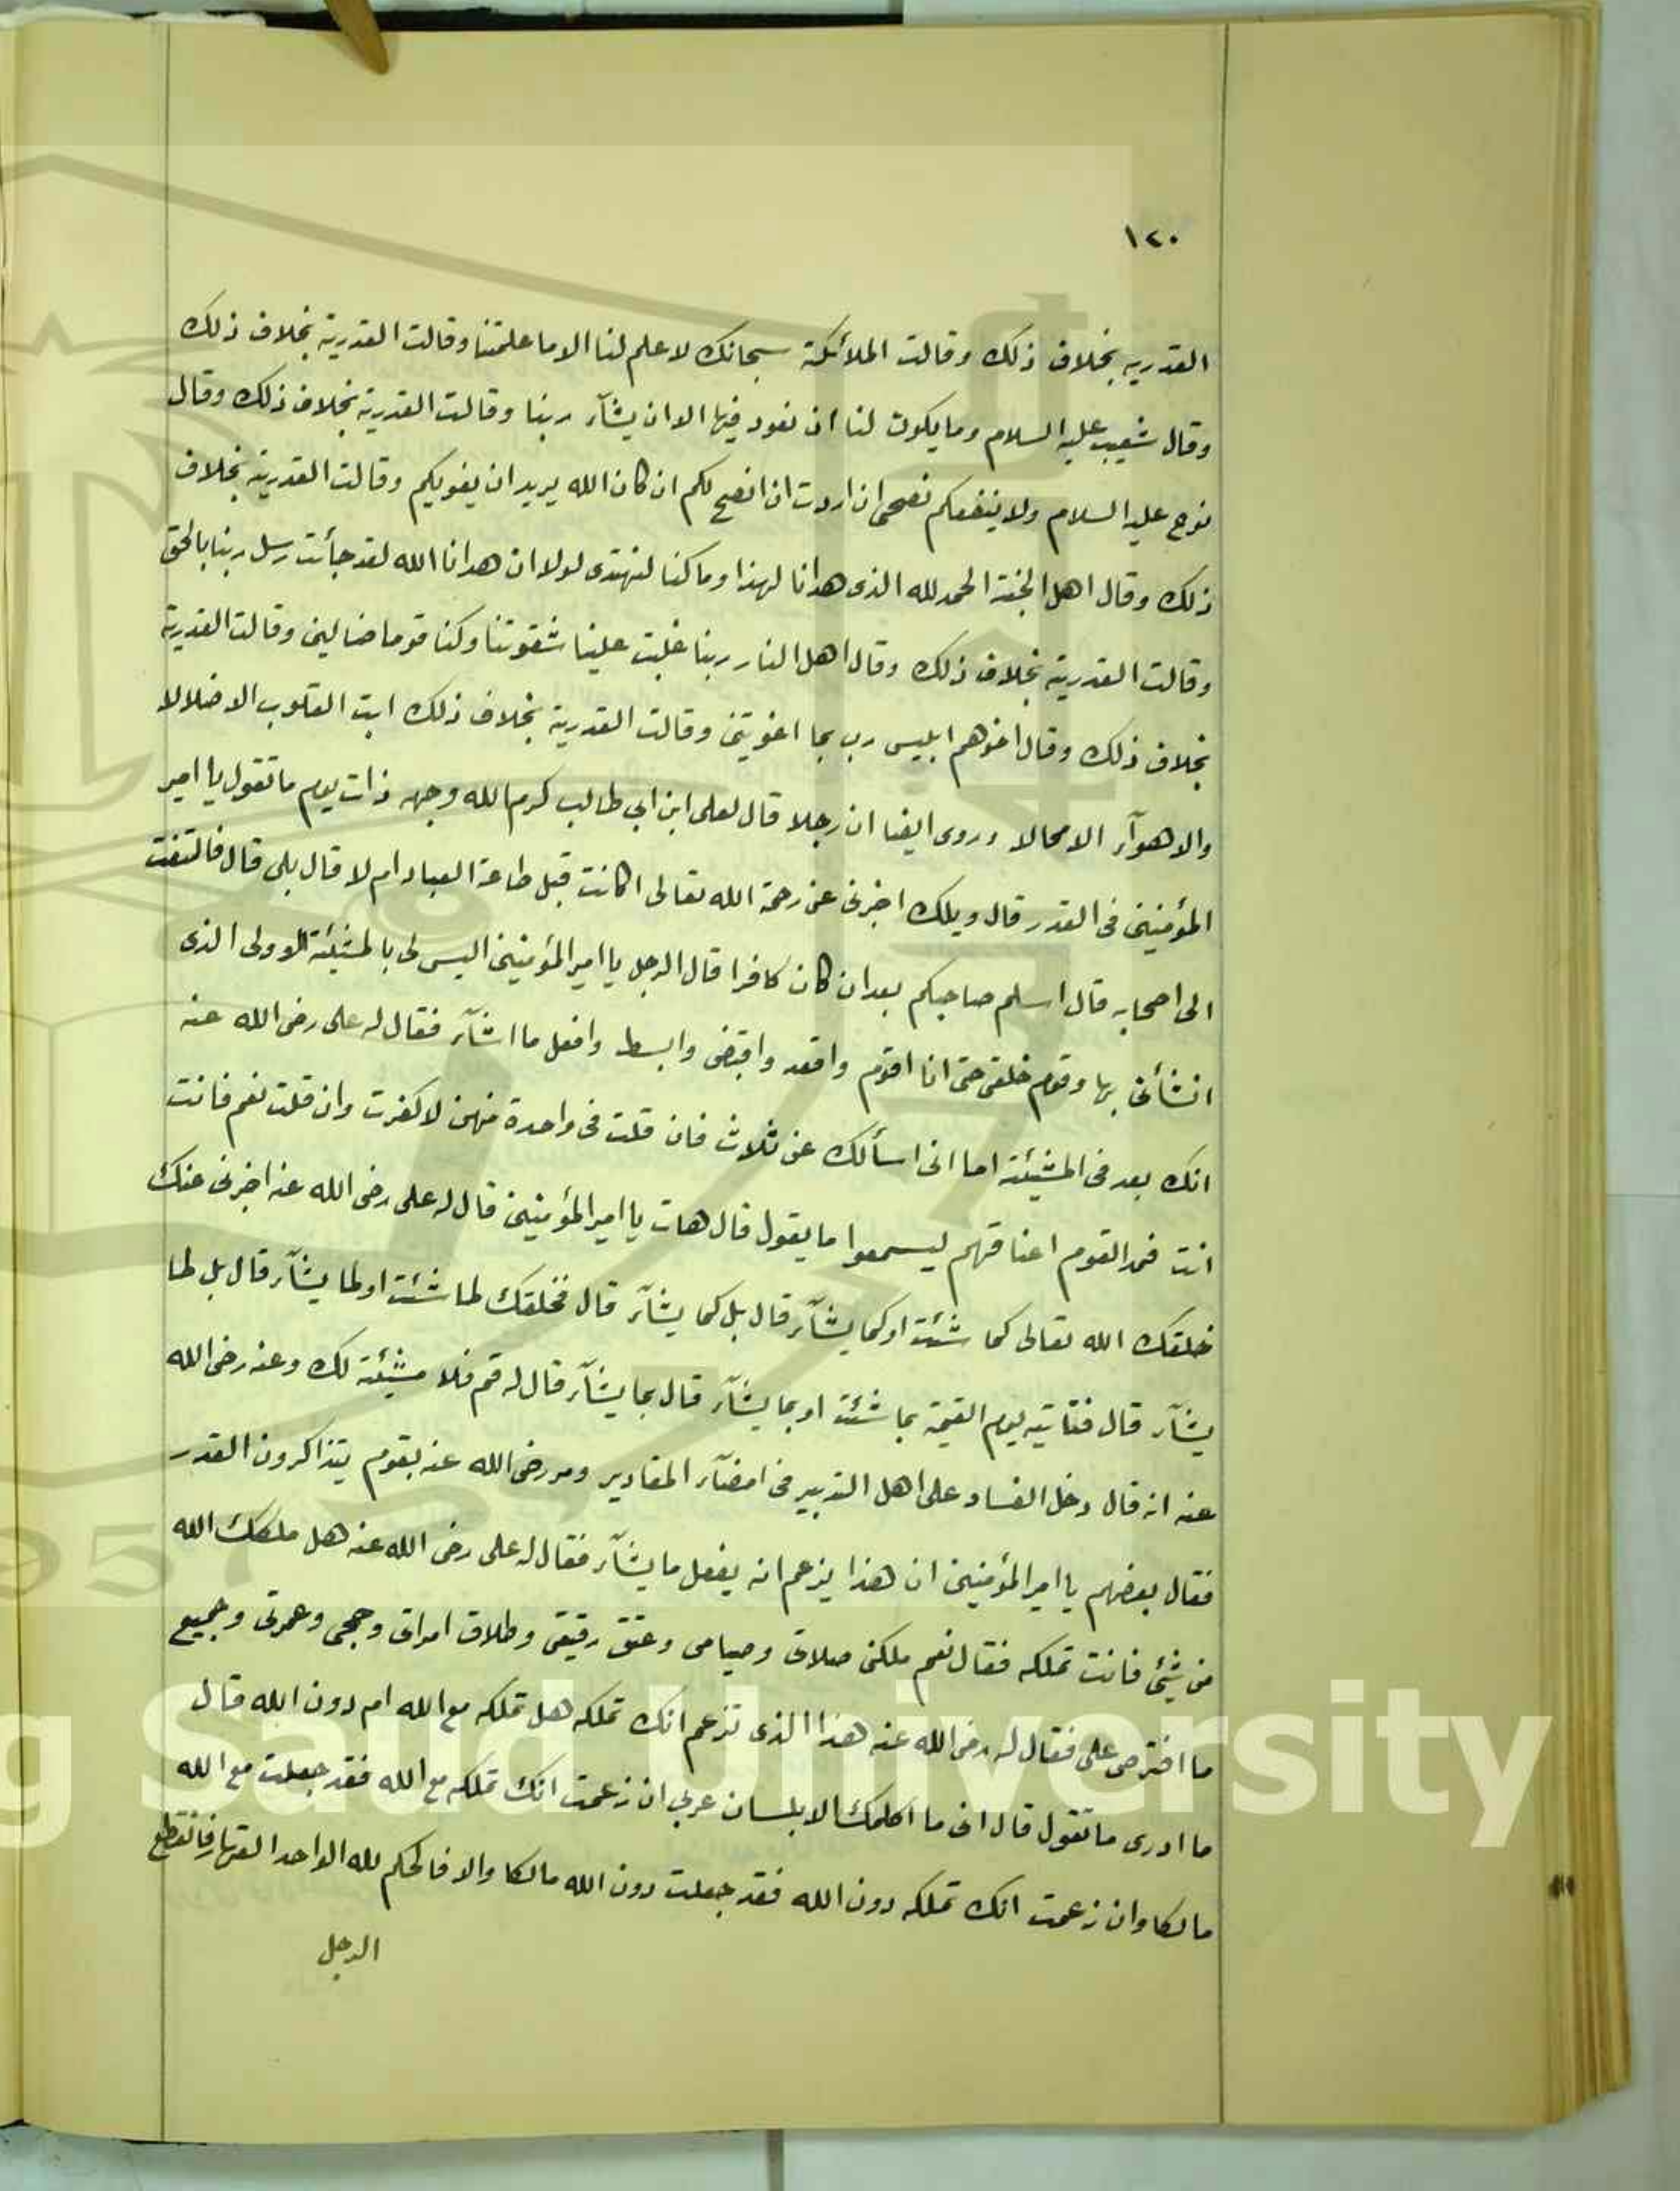 ١٢٠
القدرية بخلاف ذلك وقالت الملائكة سبحانك لا علم لنا الا ما علمتنا وقالت القدرية بخلاف ذلك
وقال شعيب عليه السلام وما يكون لنا ان نعود فيها الا ان يشآء ربنا وقالت القدرية بخلاف ذلك وقال
نوح عليه السلام ولا ينفعكم نصحى ان اردت ان انصح لكم ان كان الله يريد ان يغويكم وقالت القدرية بخلاف
ذلك وقال اهل الجنة الحمد لله الذى هدانا لهذا وما كنا لنهتدى لولا ان هدانا الله لقد جأئت رسل ربنا بالحق
وقالت القدرية بخلاف ذلك وقال اهل النار ربنا غلبت علينا شقوتنا وكنا قوما ضالين وقالت القدرية
بخلاف ذلك وقال اخوهم ابليس رب بما اغويتنى وقالت القدرية بخلاف ذلك ابت القلوب الا ضلالا
والاهوآء الا محالا وروى ايضا ان رجلا قال لعلى ابن ابي طالب كرم الله وجهه ذات يوم ما تقول يا امير
المؤمنين فى القدر قال ويلك اخبرنى عن رحمة الله تعالى اكانت قبل طاعة العباد ام لا قال بلى قال فالتفت
الى اصحابه قال اسلم صاحبكم بعد ان كان كافرا قال الرجل يا امير المؤمنين اليس لى بالمشيئة الاولى الذى
انشأنى بها وقوم خلقى حتى انا اقوم واقعد واقبض وابسط وافعل ما اشآء فقال له على رضى الله عنه
انك بعد فى المشيئة اما انى اسألك عن ثلاث فان قلت فى واحدة منهن لا كفرت وان قلت نعم فانت
انت فمد القوم اعناقهم ليسمعوا ما يقول قال هات يا امير المؤمنين قال له على رضى الله عنه اخبرنى عنك
خلقك الله تعالى كما شئت او كما يشآء قال بل كما يشآء قال فخلقك لما شئت او لما يشآء قال بل لما
يشآء قال فتأتيه يوم القيمة بما شئت او بما يشآء قال بما يشآء قال له قم فلا مشيئة لك وعنه رضى الله
عنه انه قال دخل الفساد على اهل التدبير فى امضآء المقادير ومر رضى الله عنه بقوم يتذاكرون القدر
فقال بعضهم يا امير المؤمنين ان هذا يزعم انه يفعل ما يشآء فقال له على رضى الله عنه هل ملكك الله
من شيئ فانت تملكه فقال نعم ملكنى صلاتى وصيامى وعتق رقيقى وطلاق امراتى وحجى وعمرتى وجميع
ما افترض على فقال له رضى الله عنه هذا الذى تزعم انك تملكه هل تملكه مع الله ام دون الله قال
ما ادرى ما تقول قال انى ما اكلمك الا بلسان عربي ان زعمت انك تملكه مع الله فقد جعلت مع الله
مالكا وان زعمت انك تملكه دون الله فقد جعلت دون الله مالكا والا فالحكم لله الواحد القهار فانقطع
الرجل
King Saud University
1957